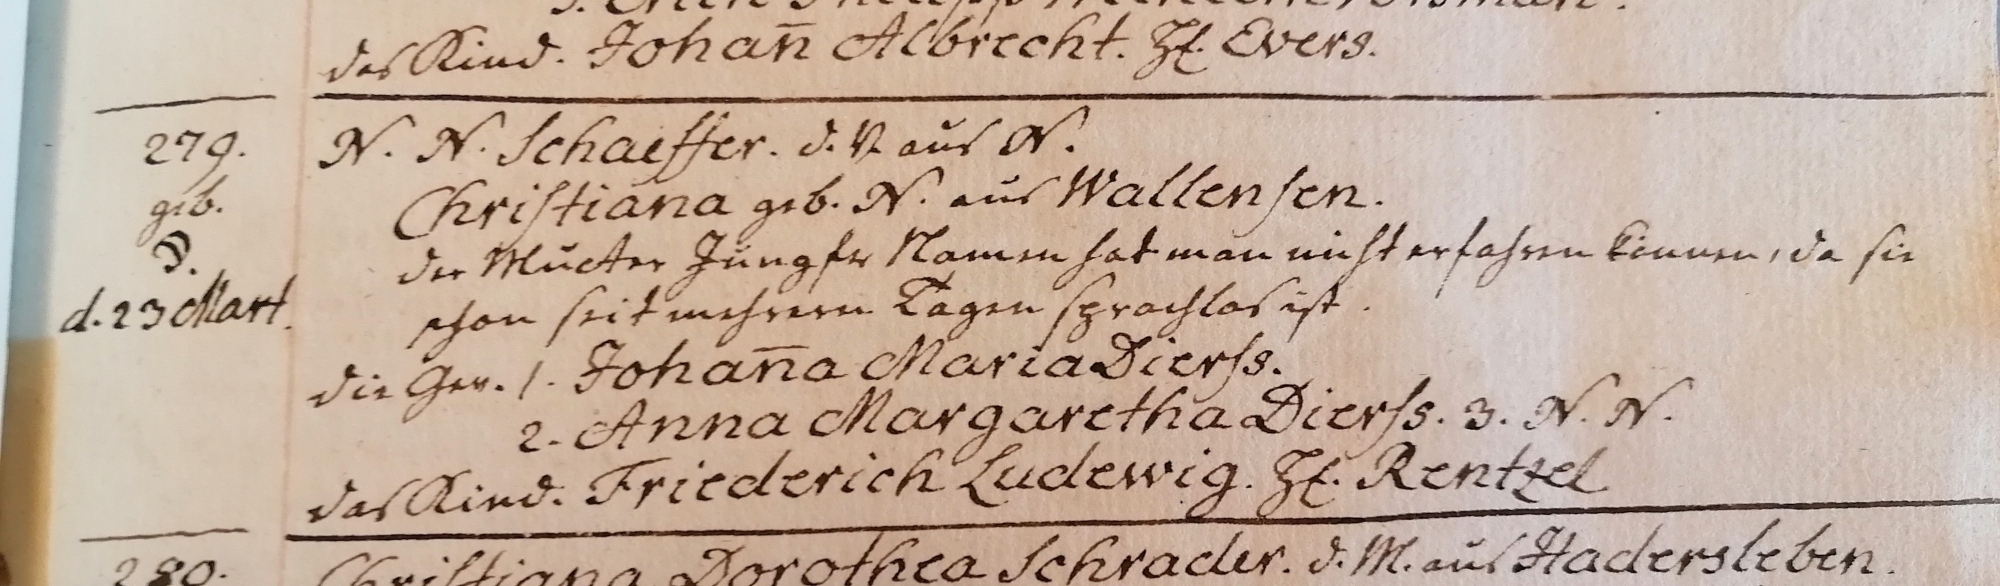 das Kind. Johan̄ Albrecht. Hℓ. Evers.
279. N. N. Schaeffer. d. V. aus N.
geb. Christiana geb. N. aus Wallensen.
D. der Mutter Jungfer Namen hat man nicht erfahren können, da sie
d. 23 Mart. schon seit mehrern Tagen sprachlos ist.
die Gev. 1. Johan̄a Maria Dierss.
2. Anna Margaretha Dierss. 3. N. N.
das Kind. Friederich Ludewig. Hℓ. Rentzel
280. Christiana Dorothea Schrader. d. M. aus Hadersleben.